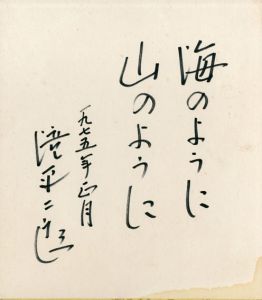 海のように
山のように
一九七五年正月
滝平二郎